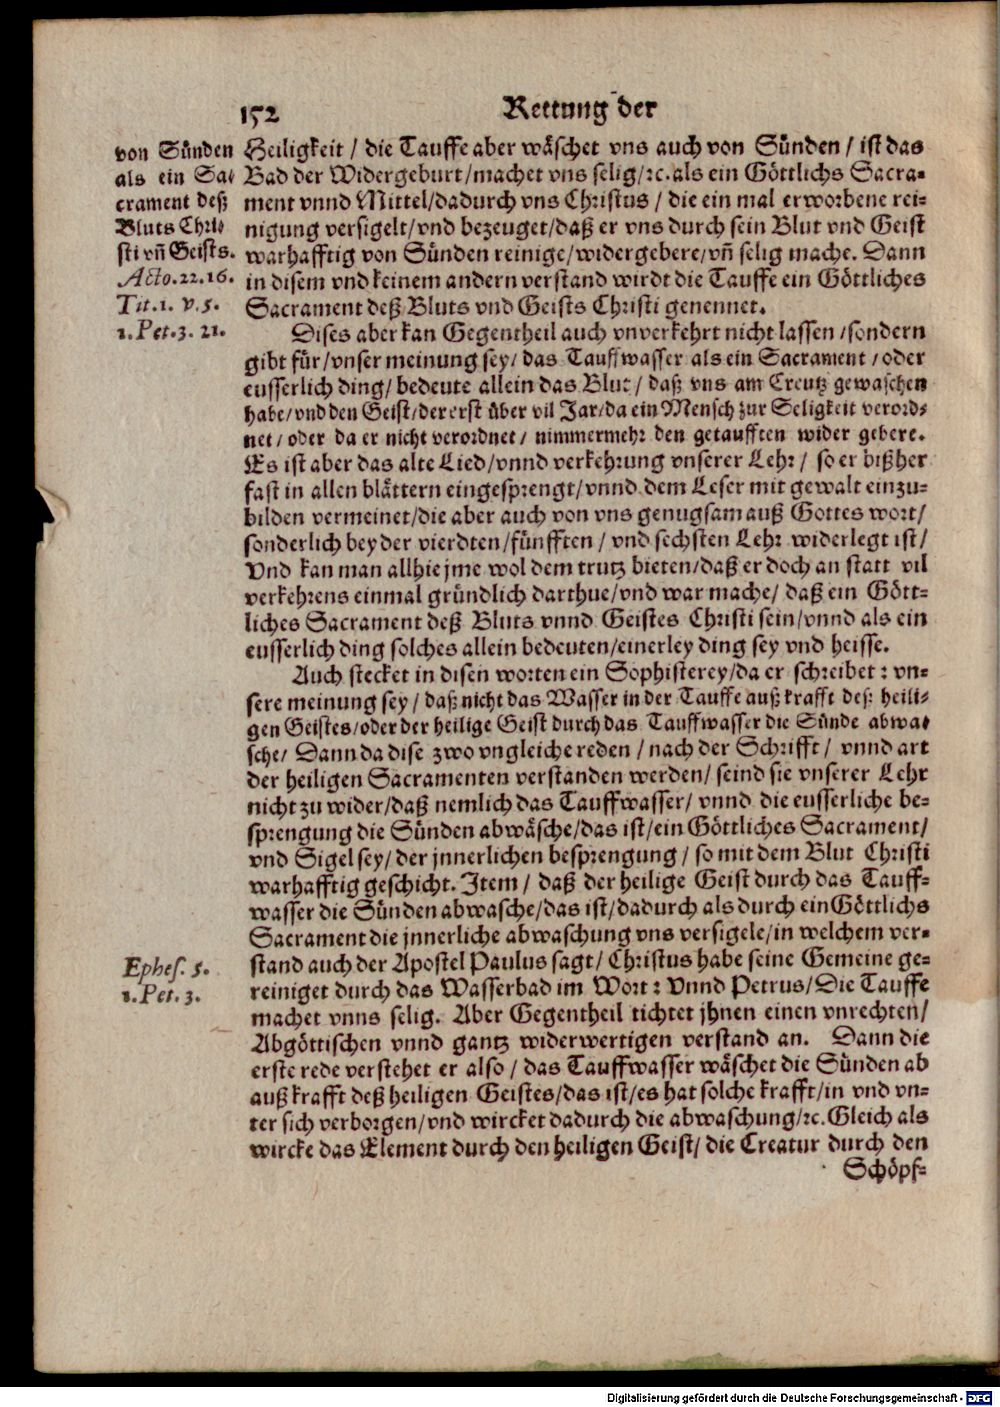 152
Rettung der
von Sünden
als ein Sa-
crament deß
Bluts Chri-
sti vñ Geists.
Acto.22.16.
Tit.1. v.5.
1.Pet.3. 21.
Heiligkeit / die Tauffe aber wäschet vns auch von Sünden / ist das
Bad der Widergeburt/machet vns selig/ꝛc.als ein Göttlichs Sacra-
ment vnnd Mittel/dadurch vns Christus / die ein mal erworbene rei-
nigung versigelt/vnd bezeuget/daß er vns durch sein Blut vnd Geist
warhafftig von Sünden reinige/widergebere/vñ selig mache. Dann
in disem vnd keinem andern verstand wirdt die Tauffe ein Göttliches
Sacrament deß Bluts vnd Geists Christi genennet.
Dises aber kan Gegentheil auch vnverkehrt nicht lassen /sondern
gibt für/vnser meinung sey/ das Tauffwasser als ein Sacrament /oder
eusserlich ding/ bedeute allein das Blut / daß vns am Creutz gewaschen
habe/vnd den Geist/der erst über vil Jar/da ein Mensch zur Seligkeit verord-
net/ oder da er nicht verordnet/ nimmermehr den getaufften wider gebere.
Es ist aber das alte Lied/vnnd verkehrung vnserer Lehr/ so er bißher
fast in allen blättern eingesprengt/vnnd dem Leser mit gewalt einzu-
bilden vermeinet/die aber auch von vns genugsam auß Gottes wort/
sonderlich bey der vierdten/fünfften / vnd sechsten Lehr widerlegt ist/
Vnd kan man allhie jme wol dem trutz bieten/daß er doch an statt vil
verkehrens einmal gründlich darthue/vnd war mache/ daß ein Gött-
liches Sacrament deß Bluts vnnd Geistes Christi sein/vnnd als ein
eusserlich ding solches allein bedeuten/einerley ding sey vnd heisse.
Auch stecket in disen worten ein Sophisterey/da er schreibet: vn-
sere meinung sey / daß nicht das Wasser in der Tauffe auß krafft deß heili-
gen Geistes/oder der heilige Geist durch das Tauffwasser die Sünde abwa-
sche/ Dann da dise zwo vngleiche reden / nach der Schrifft/ vnnd art
der heiligen Sacramenten verstanden werden/ seind sie vnserer Lehr
nicht zu wider/daß nemlich das Tauffwasser/ vnnd die eusserliche be-
sprengung die Sünden abwäsche/das ist/ein Göttliches Sacrament/
vnd Sigel sey/ der jnnerlichen besprengung / so mit dem Blut Christi
warhafftig geschicht. Item / daß der heilige Geist durch das Tauff-
wasser die Sünden abwasche/das ist/dadurch als durch ein Göttlichs
Sacrament die jnnerliche abwaschung vns versigele/in welchem ver-
stand auch der Apostel Paulus sagt/ Christus habe seine Gemeine ge-
Ephes. 5.
1.Pet.3.
reiniget durch das Wasserbad im Wort: Vnnd Petrus/Die Tauffe
machet vnns selig. Aber Gegentheil tichtet jhnen einen vnrechten/
Abgöttischen vnnd gantz widerwertigen verstand an. Dann die
erste rede verstehet er also / das Tauffwasser wäschet die Sünden ab
auß krafft deß heiligen Geistes/das ist/es hat solche krafft/in vnd vn-
ter sich verborgen/vnd wircket dadurch die abwaschung/ꝛc. Gleich als
wircke das Element durch den heiligen Geist/ die Creatur durch den
Schöpf-
Digitalisierung gefördert durch die Deutsche Forschungsgemeinschaft - DFG